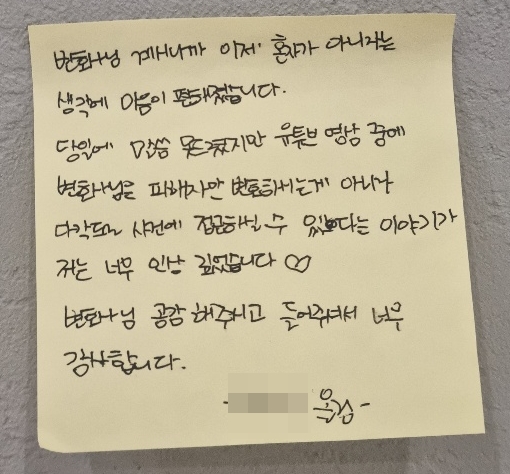 변호사님 계시니까 이제 혼자가 아니라는
생각에 마음이 편해졌습니다.
당일에 말씀 못드렸지만 유튜브 영상 중에
변호사님은 피해자만 변호하시는게 아니라
다각도로 사건에 접근하실 수 있다는 이야기가
저는 너무 인상 깊었습니다 ♡
변호사님 공감 해주시고 들어주셔서 너무
감사합니다.
- -